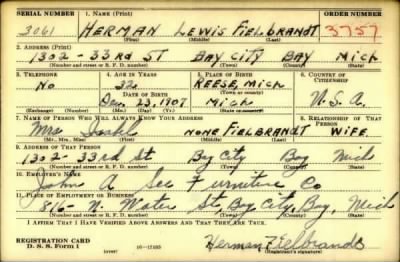 SERIAL NUMBER 1. NAME (Print) ORDER NUMBER
3061 HERMAN LEWIS FIELBRANDT 3757
(First) (Middle) (Last)
2. ADDRESS (Print)
1302 - 33RD ST BAY CITY BAY MICH
(Number and street or R. F. D. number) (Town) (County) (State)
3. TELEPHONE 4. AGE IN YEARS 5. PLACE OF BIRTH 6. COUNTRY OF CITIZENSHIP
NO 32 REESE, MICH
DATE OF BIRTH (Town or county)
Dec. 23, 1907 MICH U.S.A.
(Exchange) (Number) (Mo.) (Day) (Yr.) (State or country)
7. NAME OF PERSON WHO WILL ALWAYS KNOW YOUR ADDRESS 8. RELATIONSHIP OF THAT PERSON
Mrs. NONE FIELBRANDT WIFE
(Mr., Mrs., Miss) (First) (Middle) (Last)
9. ADDRESS OF THAT PERSON
1302 - 33rd St Bay City Bay Mich
(Number and street or R. F. D. number) (Town) (County) (State)
10. EMPLOYER'S NAME
John A See Furniture Co
11. PLACE OF EMPLOYMENT OR BUSINESS
816 - N. Water St, Bay City, Bay, Mich
(Number and street or R. F. D. number) (Town) (County) (State)
I AFFIRM THAT I HAVE VERIFIED ABOVE ANSWERS AND THAT THEY ARE TRUE.
REGISTRATION CARD
D. S. S. Form 1 (over) Herman Fielbrandt
(Registrant's signature)